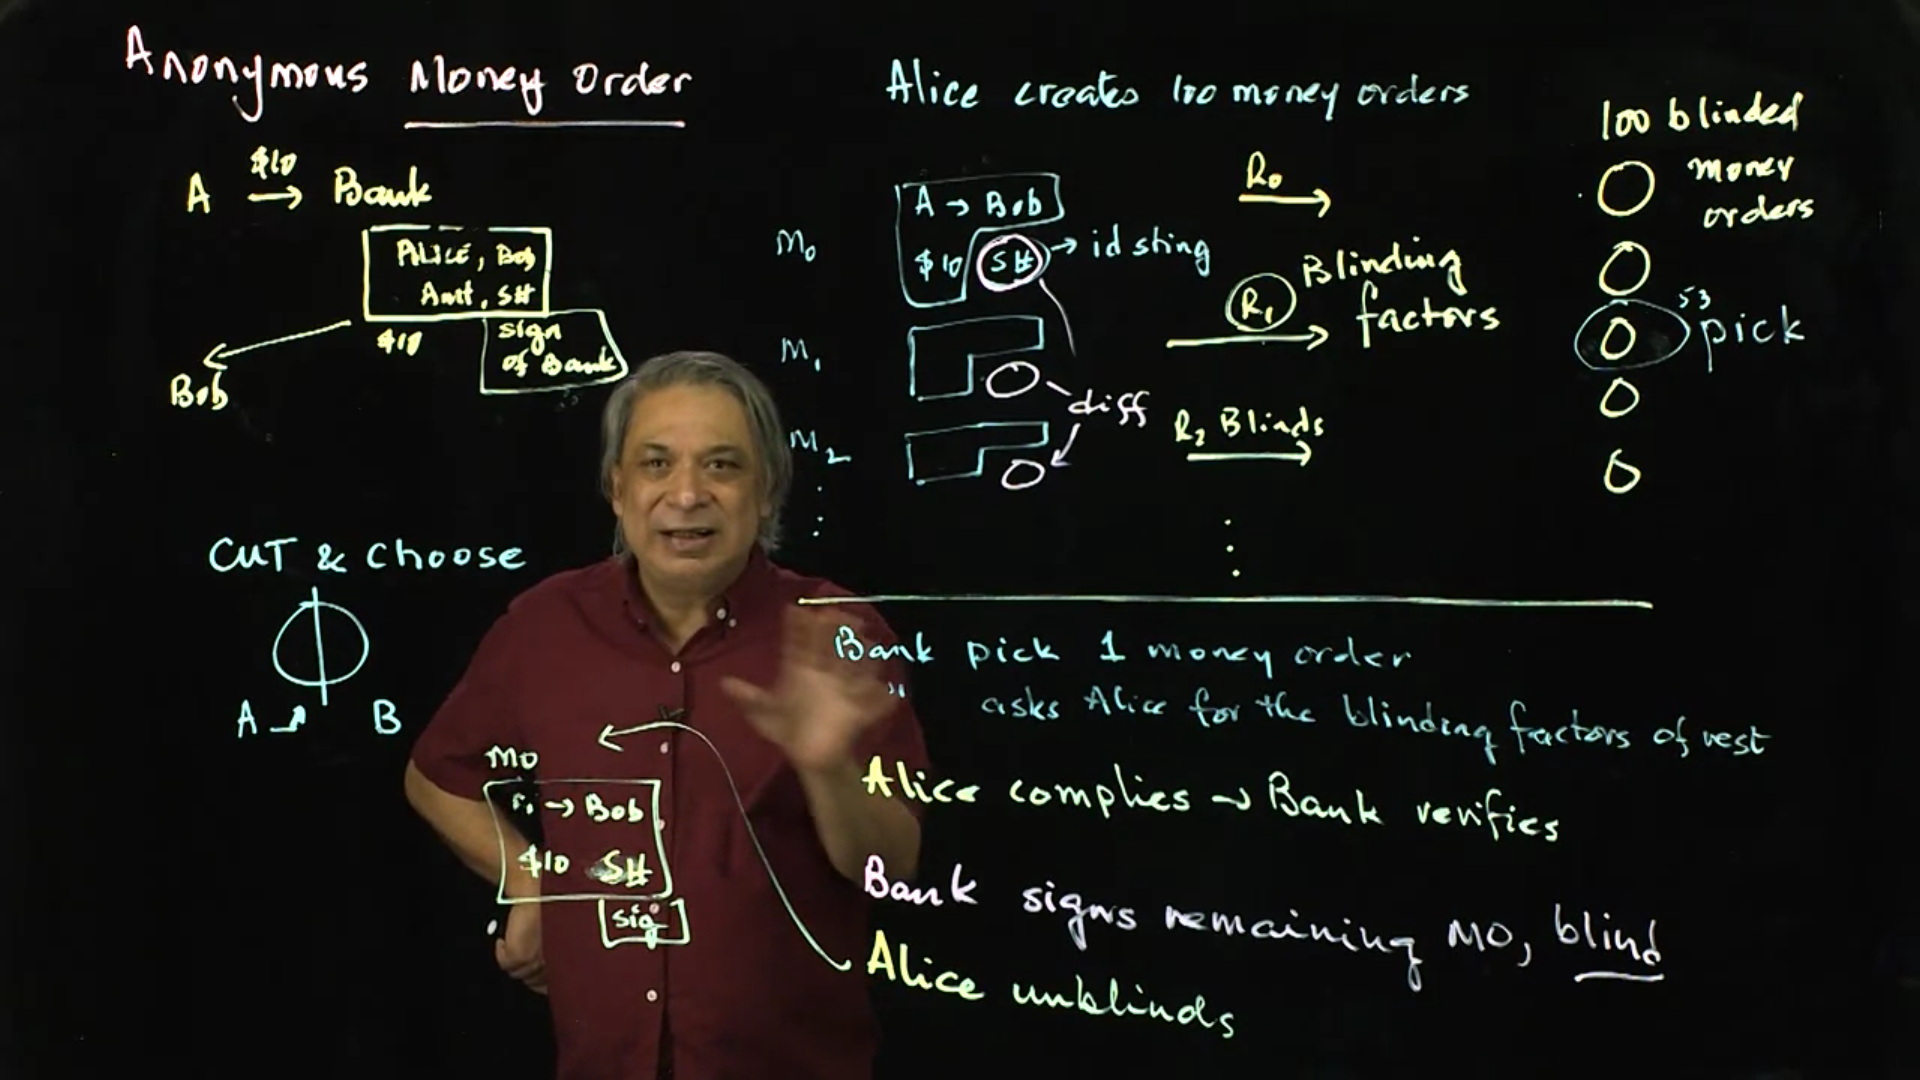 Anonymous Money Order
A $10 → Bank
ALICE, Bob
Amt, S#
$10
sign
of Bank
Bob
CUT & Choose
A B
MO
→ Bob
$10 S#
sig
Alice creates 100 money orders
M0
A → Bob
$10 S# → id sting
M1
M2
diff
R0
R1 Blinding
factors
R2 Blinds
100 blinded
money
orders
53
pick
Bank pick 1 money order
" asks Alice for the blinding factors of rest
Alice complies → Bank verifies
Bank signs remaining MO, blind
Alice unblinds